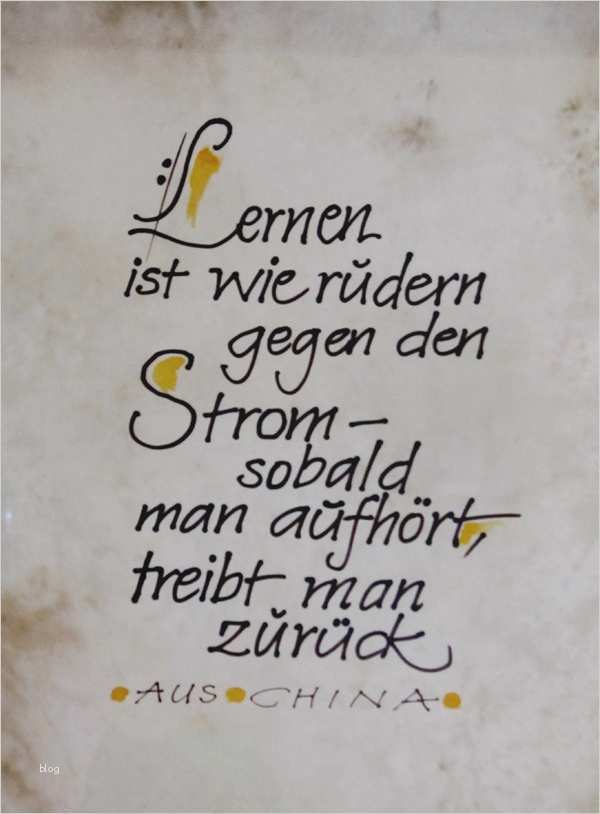 Lernen
ist wie rudern
gegen den
Strom –
sobald
man aufhört,
treibt man
zurück
• AUS • CHINA •
blog